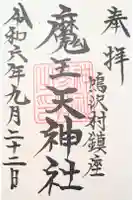 奉拝
鴻沢村鎮座
魔王天神社
令和六年九月二十二日